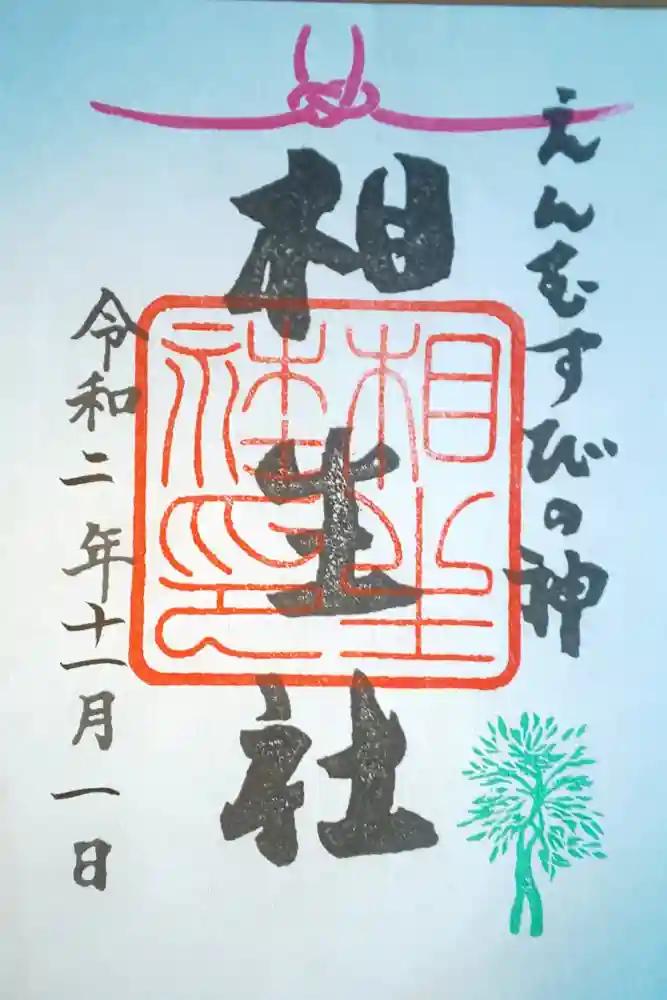 えんむすびの神
相生社
相生社之印
令和二年十一月一日